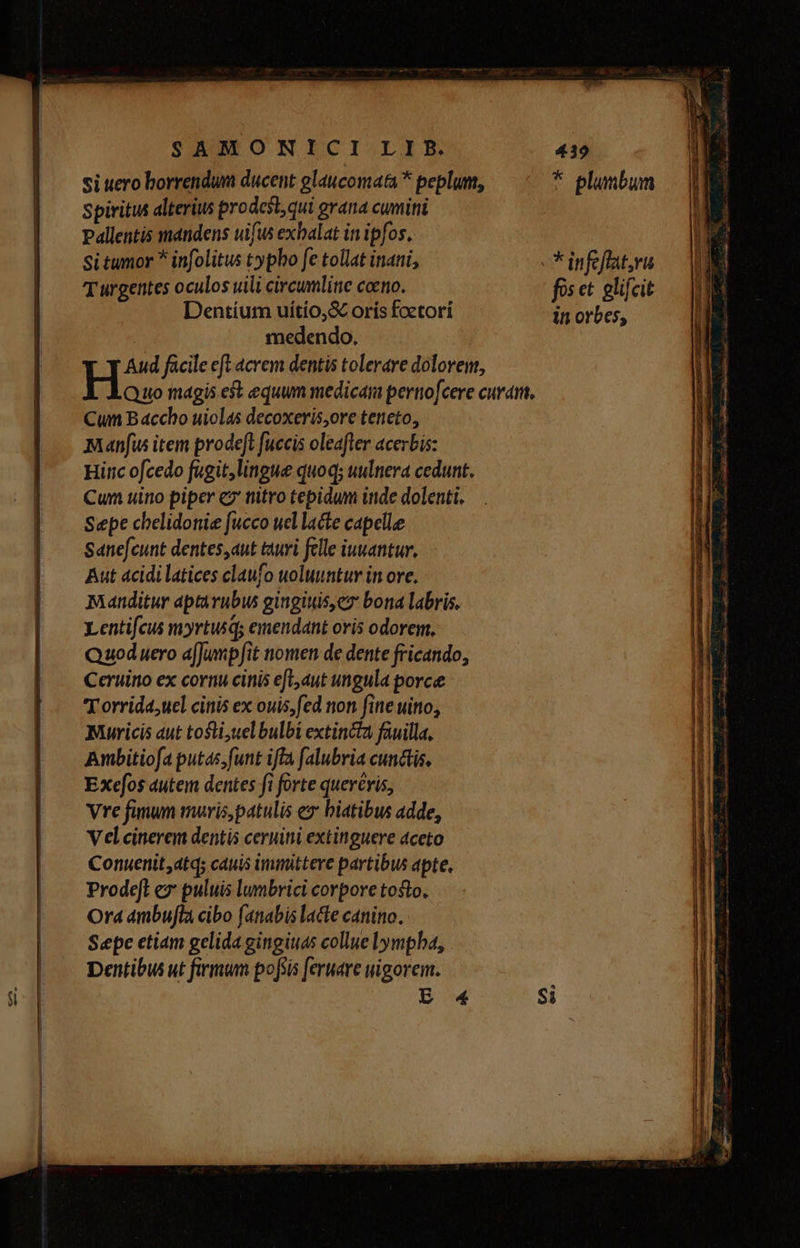 SAMONICI LIB. 439
Si uero horrendum ducent glaucomata * peplum, * plumbum
Spiritus alterius prodest, qui grana cumini
Pallentis mandens uiſus exhalat in ipſos.
Si tumor * inſolitus typho ſe tollat inani, * infeſtat, ru
Turgentes oculos uili circumline cœno. fos et gliſcit
Dentium uitio, & oris fœtori in orbes,
medendo.
HAud facile eſt acrem dentis tolerare dolorem,
Quo magis est æquum medicam pernoſcere curam.
Cum Baccho uiolas decoxeris, ore teneto,
Manſus item prodeſt ſuccis oleaſter acerbis:
Hinc oſcedo fugit, linguæ quoq; uulnera cedunt.
Cum uino piper & nitro tepidum inde dolenti.
Sæpe chelidoniæ ſucco uel lacte capellæ
Saneſcunt dentes, aut tauri felle iuuantur.
Aut acidi latices clauſo uoluuntur in ore.
Manditur apta rubus gingiuis, & bona labris.
Lentiſcus myrtusq; emendant oris odorem.
Quod uero aſſumpſit nomen de dente fricando,
Ceruino ex cornu cinis eſt, aut ungula porcæ
Torrida, uel cinis ex ouis, ſed non ſine uino,
Muricis aut tosti, uel bulbi extincta fauilla.
Ambitioſa putas, ſunt iſta ſalubria cunctis.
Exeſos autem dentes ſi forte querêris,
Vre fimum muris, patulis & hiatibus adde,
Vel cinerem dentis ceruini extinguere aceto
Conuenit, atq; cauis immittere partibus apte.
Prodeſt & puluis lumbrici corpore tosto.
Ora ambuſta cibo ſanabis lacte canino.
Sæpe etiam gelida gingiuas collue lympha,
Dentibus ut firmum poſsis ſeruare uigorem.
E 4 Si